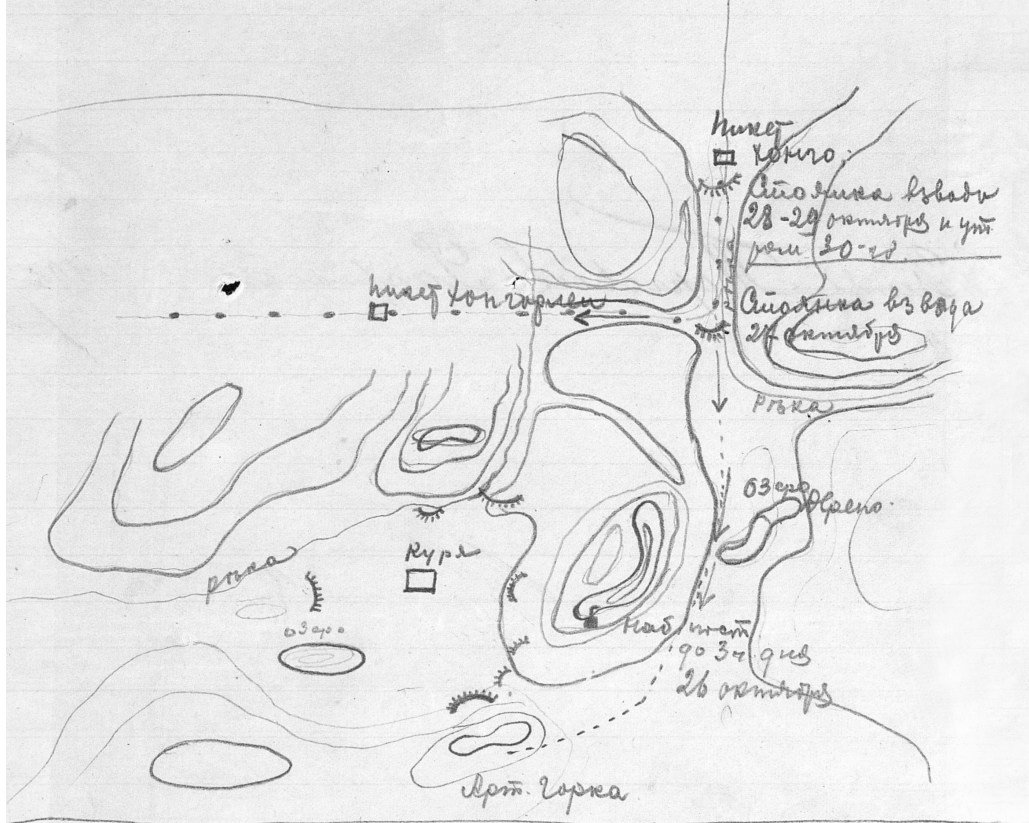 Пикет
Хонго.
Стоянка взвода
28-29 октября и ут
ром 30-го.
Пикет Хонгорлен
Стоянка взвода
27 октября
Рѣка
озеро
Куря
рѣка
озеро
Наб. пост
до 3ч дня
26 октября
Арт. Горка